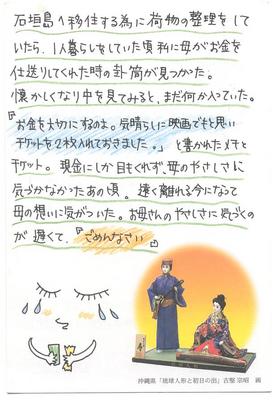 石垣島へ移住する為に荷物の整理をして
いたら、1人暮らしをしていた頃私に母がお金を
仕送りしてくれた時の封筒が見つかった。
懐かしくなり中を見てみると、まだ何か入っていた。
『お金を大切にするのよ。気晴らしに映画でもと思い
チケットを2枚入れておきました。』と書かれたメモと
チケット。現金にしか目もくれず、母のやさしさに
気づかなかったあの頃。遠く離れる今になって
母の想いに気がついた。お母さんのやさしさに気づくの
が遅くて、『ごめんなさい』
沖縄県「琉球人形と初日の出」古堅 宗昭 画